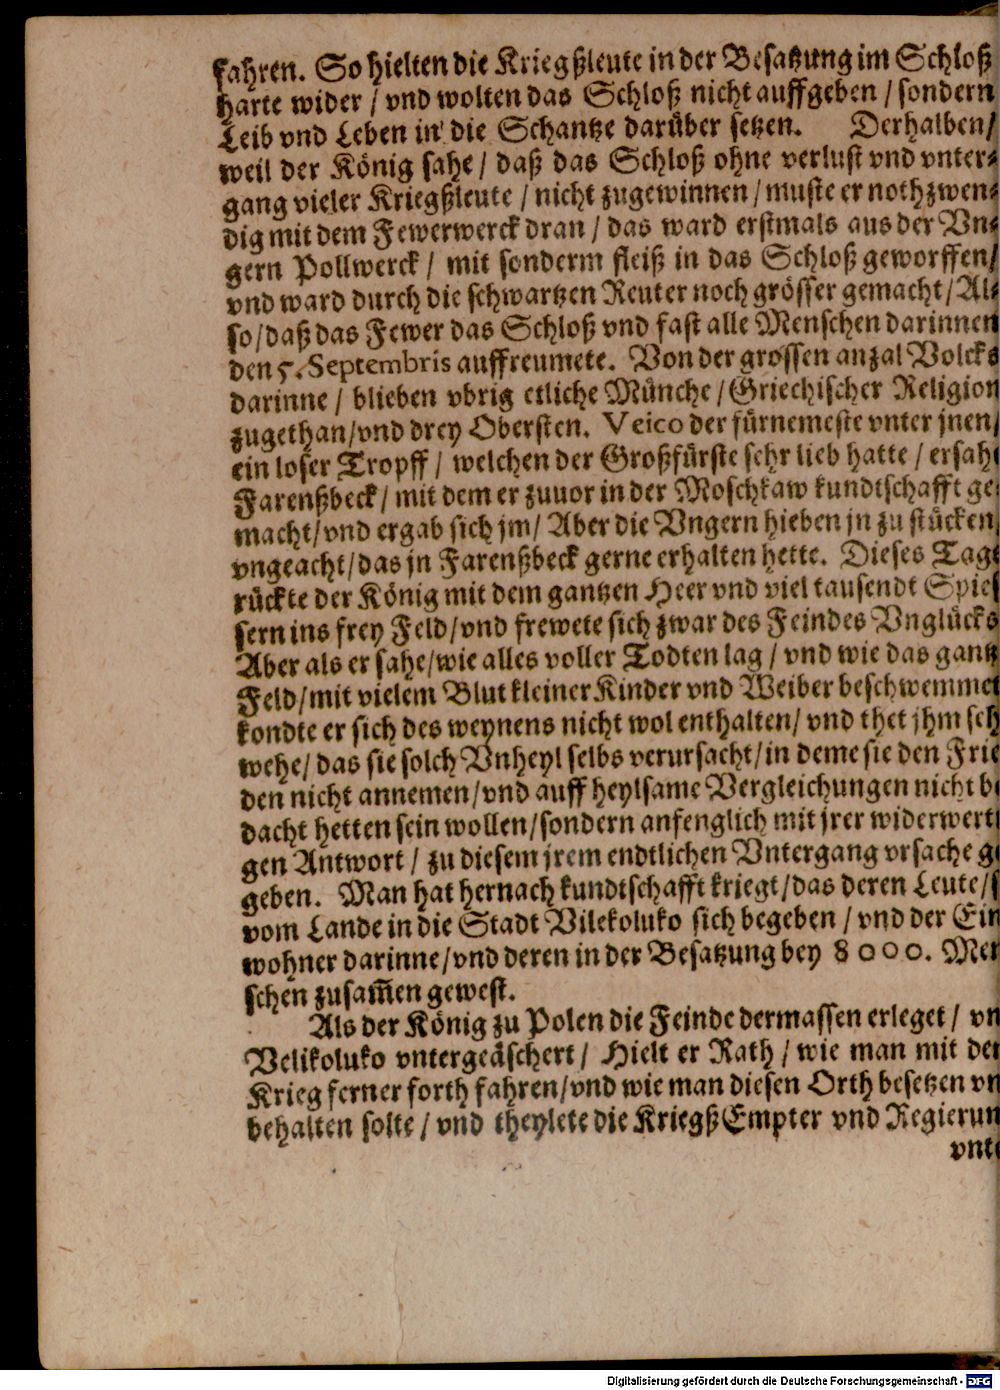 fahren. So hielten die Kriegßleute in der Besatzung im Schloß
harte wider / vnd wolten das Schloß nicht auffgeben / sondern
Leib vnd Leben in die Schantze darüber setzen. Derhalben /
weil der König sahe / daß das Schloß ohne verlust vnd vnter-
gang vieler Kriegßleute / nicht zugewinnen / muste er nothzwen-
dig mit dem Fewerwerck dran / das ward erstmals aus der Vn-
gern Pollwerck / mit sonderm fleiß in das Schloß geworffen /
vnd ward durch die schwartzen Reuter noch grösser gemacht / Al-
so / daß das Fewer das Schloß vnd fast alle Menschen darinnen
den 5. Septembris auffreumete. Von der grossen anzal Volcks
darinne / blieben vbrig etliche Münche / Griechischer Religion
zugethan / vnd drey Obersten. Veico der fürnemeste vnter jnen /
ein loser Tropff / welchen der Großfürste sehr lieb hatte / ersahe
Farenßbeck / mit dem er zuuor in der Moschkaw kundtschafft ge
macht / vnd ergab sich jm / Aber die Vngern hieben jn zu stücken
vngeacht / das jn Farenßbeck gerne erhalten hette. Dieses Tage
rückte der König mit dem gantzen Heer vnd viel tausendt Spies
sern ins frey Feld / vnd frewete sich zwar des Feindes Vnglücks
Aber als er sahe / wie alles voller Todten lag / vnd wie das gantz
Feld / mit vielem Blut kleiner Kinder vnd Weiber beschwemmet
kondte er sich des weynens nicht wol enthalten / vnd thet jhm seh
wehe / das sie solch Vnheyl selbs verursacht / in deme sie den Frie
den nicht annemen / vnd auff heylsame Vergleichungen nicht be
dacht hetten sein wollen / sondern anfenglich mit jrer widerwerti
gen Antwort / zu diesem jrem endtlichen Vntergang vrsache ge
geben. Man hat hernach kundtschafft kriegt / das deren Leute / s
vom Lande in die Stadt Vilekoluko sich begeben / vnd der Ein
wohner darinne / vnd deren in der Besatzung bey 8000. Men
schen zusam̃en gewest.
Als der König zu Polen die Feinde dermassen erleget / vn
Velikoluko vntergeäschert / Hielt er Rath / wie man mit dem
Krieg ferner forth fahren / vnd wie man diesen Orth besetzen vn
behalten solte / vnd theylete die Kriegß Empter vnd Regierun
vnte
Digitalisierung gefördert durch die Deutsche Forschungsgemeinschaft - DFG